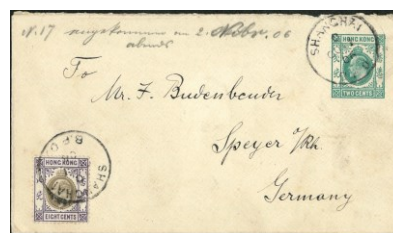 N. 17 angekommen am 2. Nobr. 06
abends
SHANGHAI
HONG KONG
TWO CENTS
To
Mr. F. Budenbender
Speyer a/Rh.
Germany
SHANGHAI
B.P.O.
HONG KONG
EIGHT CENTS